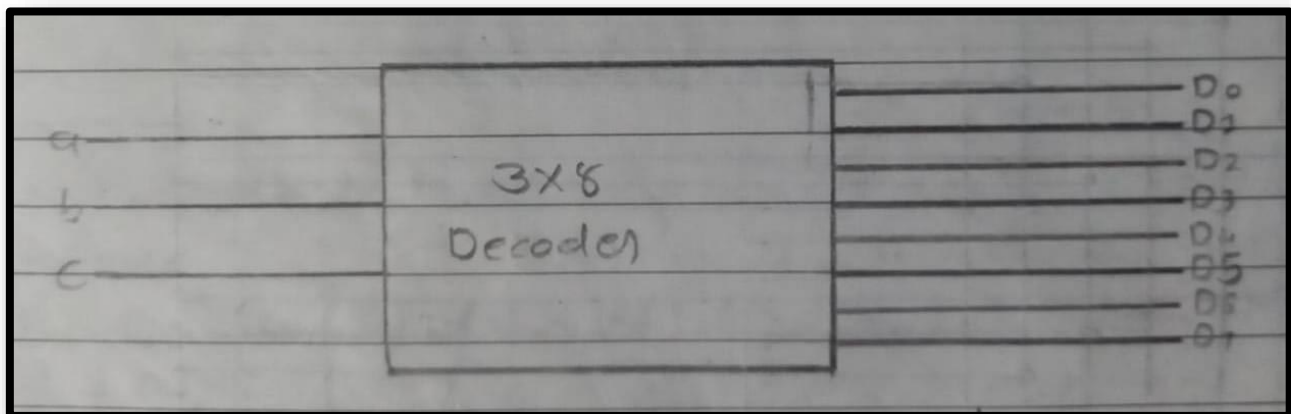 a
b
c
3X8
Decoder
D0
D1
D2
D3
D4
D5
D6
D7